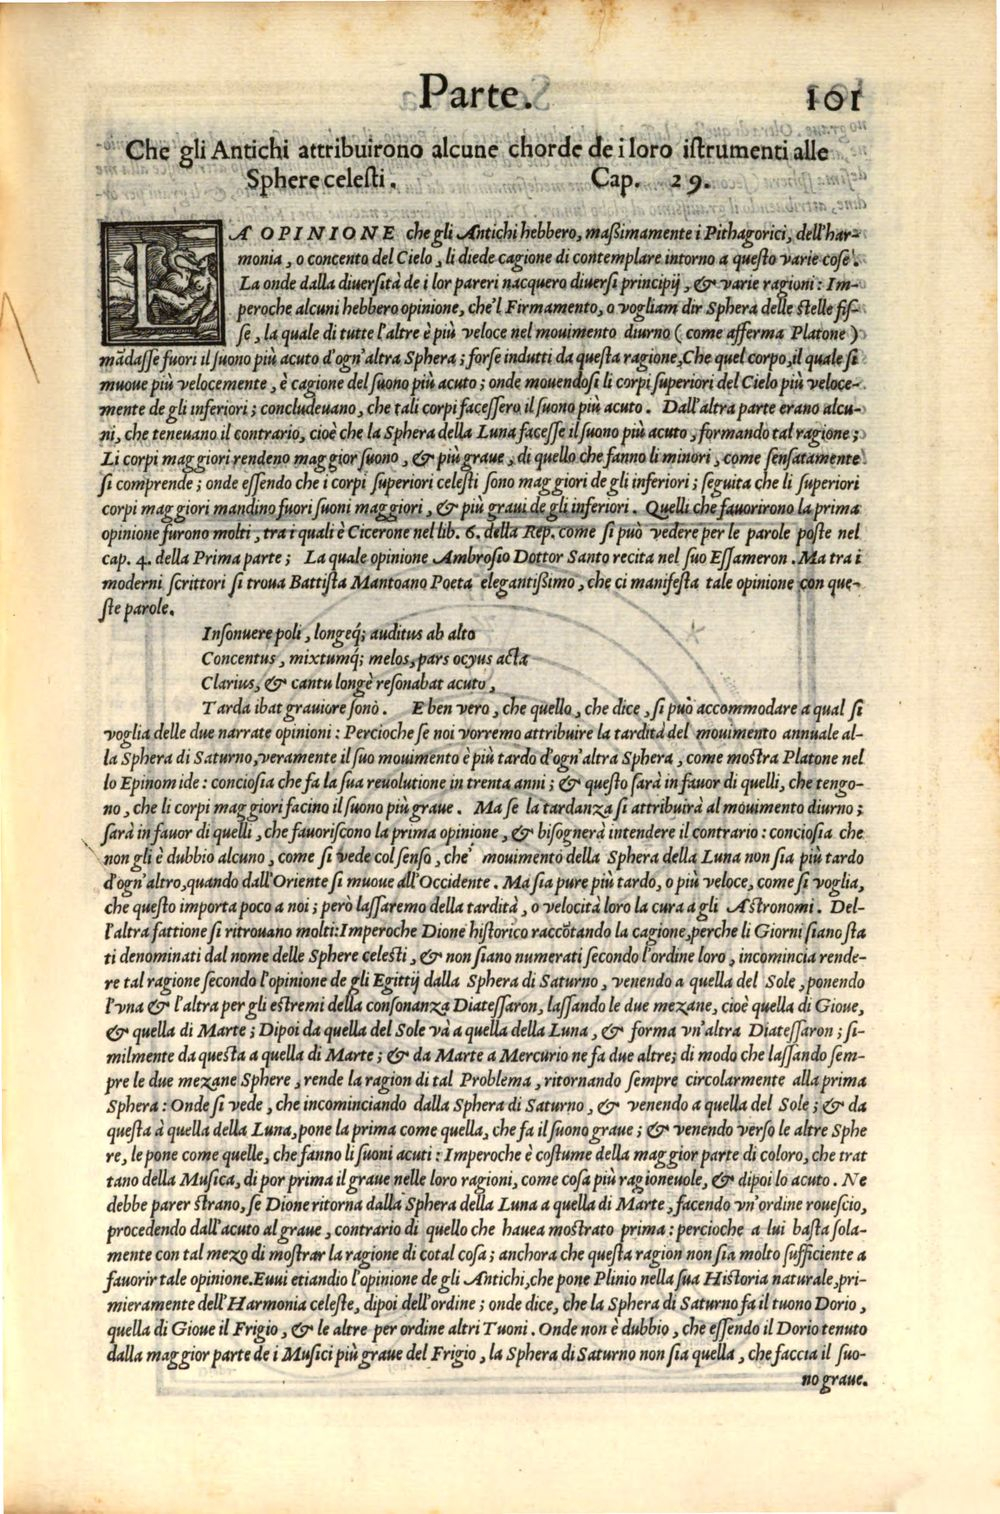 Parte. 101
Che gli Antichi attribuirono alcune chorde de i loro istrumenti alle
Sphere celesti. Cap. 29.
LA OPINIONE che gli Antichi hebbero, maßimamente i Pithagorici, dell'har-
monia, o concento del Cielo, li diede cagione di contemplare intorno a questo varie cose.
La onde dalla diuersità de i lor pareri nacquero diuersi principij, & varie ragioni: Im-
peroche alcuni hebbero opinione, che'l Firmamento, o vogliam dir Sphera delle Stelle fis-
se, la quale di tutte l'altre è più veloce nel mouimento diurno (come afferma Platone)
mãdasse fuori il suono più acuto d'ogn'altra Sphera; forse indutti da questa ragione, Che quel corpo, il quale si
muoue più velocemente, è cagione del suono più acuto; onde mouendosi li corpi superiori del Cielo più veloce-
mente de gli inferiori; concludeuano, che tali corpi facessero il suono più acuto. Dall'altra parte erano alcu-
ni, che teneuano il contrario, cioè che la Sphera della Luna facesse il suono più acuto, formando tal ragione;
Li corpi maggiori rendeno maggior suono, & più graue, di quello che fanno li minori, come sensatamente
si comprende; onde essendo che i corpi superiori celesti sono maggiori de gli inferiori; seguita che li superiori
corpi maggiori mandino fuori suoni maggiori, & più graui de gli inferiori. Quelli che fauorirono la prima
opinione furono molti, tra i quali è Cicerone nel lib. 6. della Rep. come si può vedere per le parole poste nel
cap. 4. della Prima parte; La quale opinione Ambrosio Dottor Santo recita nel suo Essameron. Ma tra i
moderni scrittori si troua Battista Mantoano Poeta elegantißimo, che ci manifesta tale opinione con que-
ste parole.
Insonuere poli, longeq́; auditus ab alto
Concentus, mixtumq́; melos, pars ocyus acta
Clarius, & cantu longè resonabat acuto,
Tarda ibat grauiore sonò. E ben vero, che quello, che dice, si può accommodare a qual si
voglia delle due narrate opinioni: Percioche se noi vorremo attribuire la tardità del mouimento annuale al-
la Sphera di Saturno, veramente il suo mouimento è più tardo d'ogn'altra Sphera, come mostra Platone nel
lo Epinomide: conciosia che fa la sua reuolutione in trenta anni; & questo sarà in fauor di quelli, che tengo-
no, che li corpi maggiori facino il suono più graue. Ma se la tardanza si attribuirà al mouimento diurno;
sarà in fauor di quelli, che fauoriscono la prima opinione, & bisognerà intendere il contrario: conciosia che
non gli è dubbio alcuno, come si vede col senso, che' mouimento della Sphera della Luna non sia più tardo
d'ogn'altro, quando dall'Oriente si muoue all'Occidente. Ma sia pure più tardo, o più veloce, come si voglia,
che questo importa poco a noi; però lassaremo della tardità, o velocità loro la cura a gli Astronomi. Del-
l'altra fattione si ritrouano molti: Imperoche Dione historico raccõtando la cagione, perche li Giorni siano sta
ti denominati dal nome delle Sphere celesti, & non siano numerati secondo l'ordine loro, incomincia rende-
re tal ragione secondo l'opinione de gli Egittij dalla Sphera di Saturno, venendo a quella del Sole, ponendo
l'vna & l'altra per gli estremi della consonanza Diatessaron, lassando le due mezane, cioè quella di Gioue,
& quella di Marte; Dipoi da quella del Sole và a quella della Luna, & forma vn'altra Diatessaron; si-
milmente da questa a quella di Marte; & da Marte a Mercurio ne fa due altre; di modo che lassando sem-
pre le due mezane Sphere, rende la ragion di tal Problema, ritornando sempre circolarmente alla prima
Sphera: Onde si vede, che incominciando dalla Sphera di Saturno, & venendo a quella del Sole; & da
questa à quella della Luna, pone la prima come quella, che fa il suono graue; & venendo verso le altre Sphe
re, le pone come quelle, che fanno li suoni acuti: Imperoche è costume della maggior parte di coloro, che trat
tano della Musica, di por prima il graue nelle loro ragioni, come cosa più ragioneuole, & dipoi lo acuto. Ne
debbe parer strano, se Dione ritorna dalla Sphera della Luna a quella di Marte, facendo vn'ordine rouescio,
procedendo dall'acuto al graue, contrario di quello che hauea mostrato prima: percioche a lui basta sola-
mente con tal mezo di mostrar la ragione di cotal cosa; anchora che questa ragion non sia molto sufficiente a
fauorir tale opinione. Euui etiandio l'opinione de gli Antichi, che pone Plinio nella sua Historia naturale, pri-
mieramente dell'Harmonia celeste, dipoi dell'ordine; onde dice, che la Sphera di Saturno fa il tuono Dorio,
quella di Gioue il Frigio, & le altre per ordine altri Tuoni. Onde non è dubbio, che essendo il Dorio tenuto
dalla maggior parte de i Musici più graue del Frigio, la Sphera di Saturno non sia quella, che faccia il suo-
no graue.